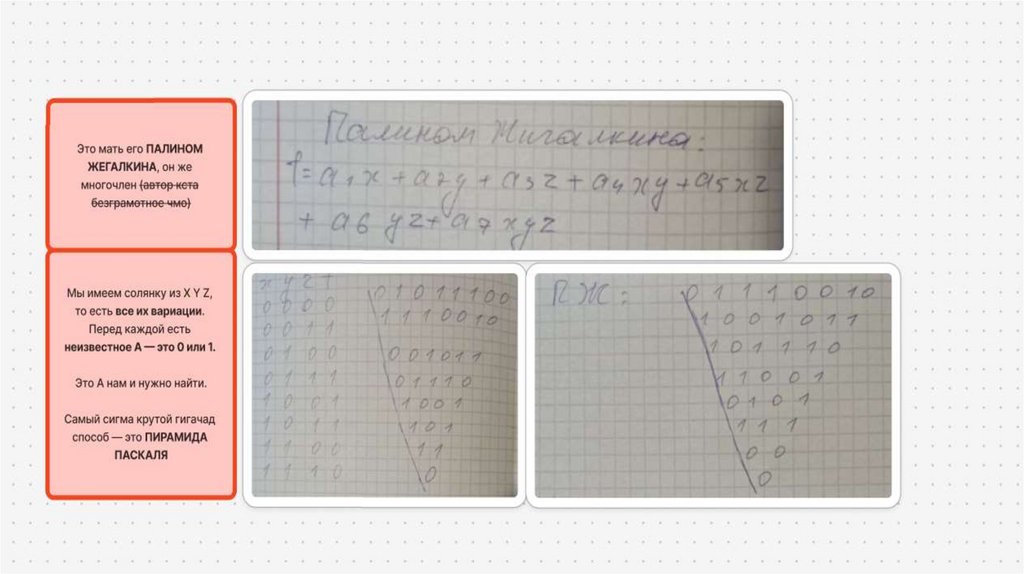 Это мать его ПАЛИНОМ
ЖЕГАЛКИНА, он же
многочлен (автор кста
безграмотное чмо)
Палином Жигалкина:
f= a1x + a2y + a3z + a4xy + a5xz
+ a6 yz + a7 xyz
Мы имеем солянку из X Y Z,
то есть все их вариации.
Перед каждой есть
неизвестное А — это 0 или 1.
Это А нам и нужно найти.
Самый сигма крутой гигачад
способ — это ПИРАМИДА
ПАСКАЛЯ
x y z f
0 0 0 0
0 0 1 1
0 1 0 0
0 1 1 1
1 0 0 1
1 0 1 1
1 1 0 0
1 1 1 0
0 1 0 1 1 1 0 0
1 1 1 0 0 1 0
0 0 1 0 1 1
0 1 1 1 0
1 0 0 1
1 0 1
1 1
0
ПЖ: 0 1 1 1 0 0 1 0
1 0 0 1 0 1 1
1 0 1 1 1 0
1 1 0 0 1
0 1 0 1
1 1 1
0 0
0